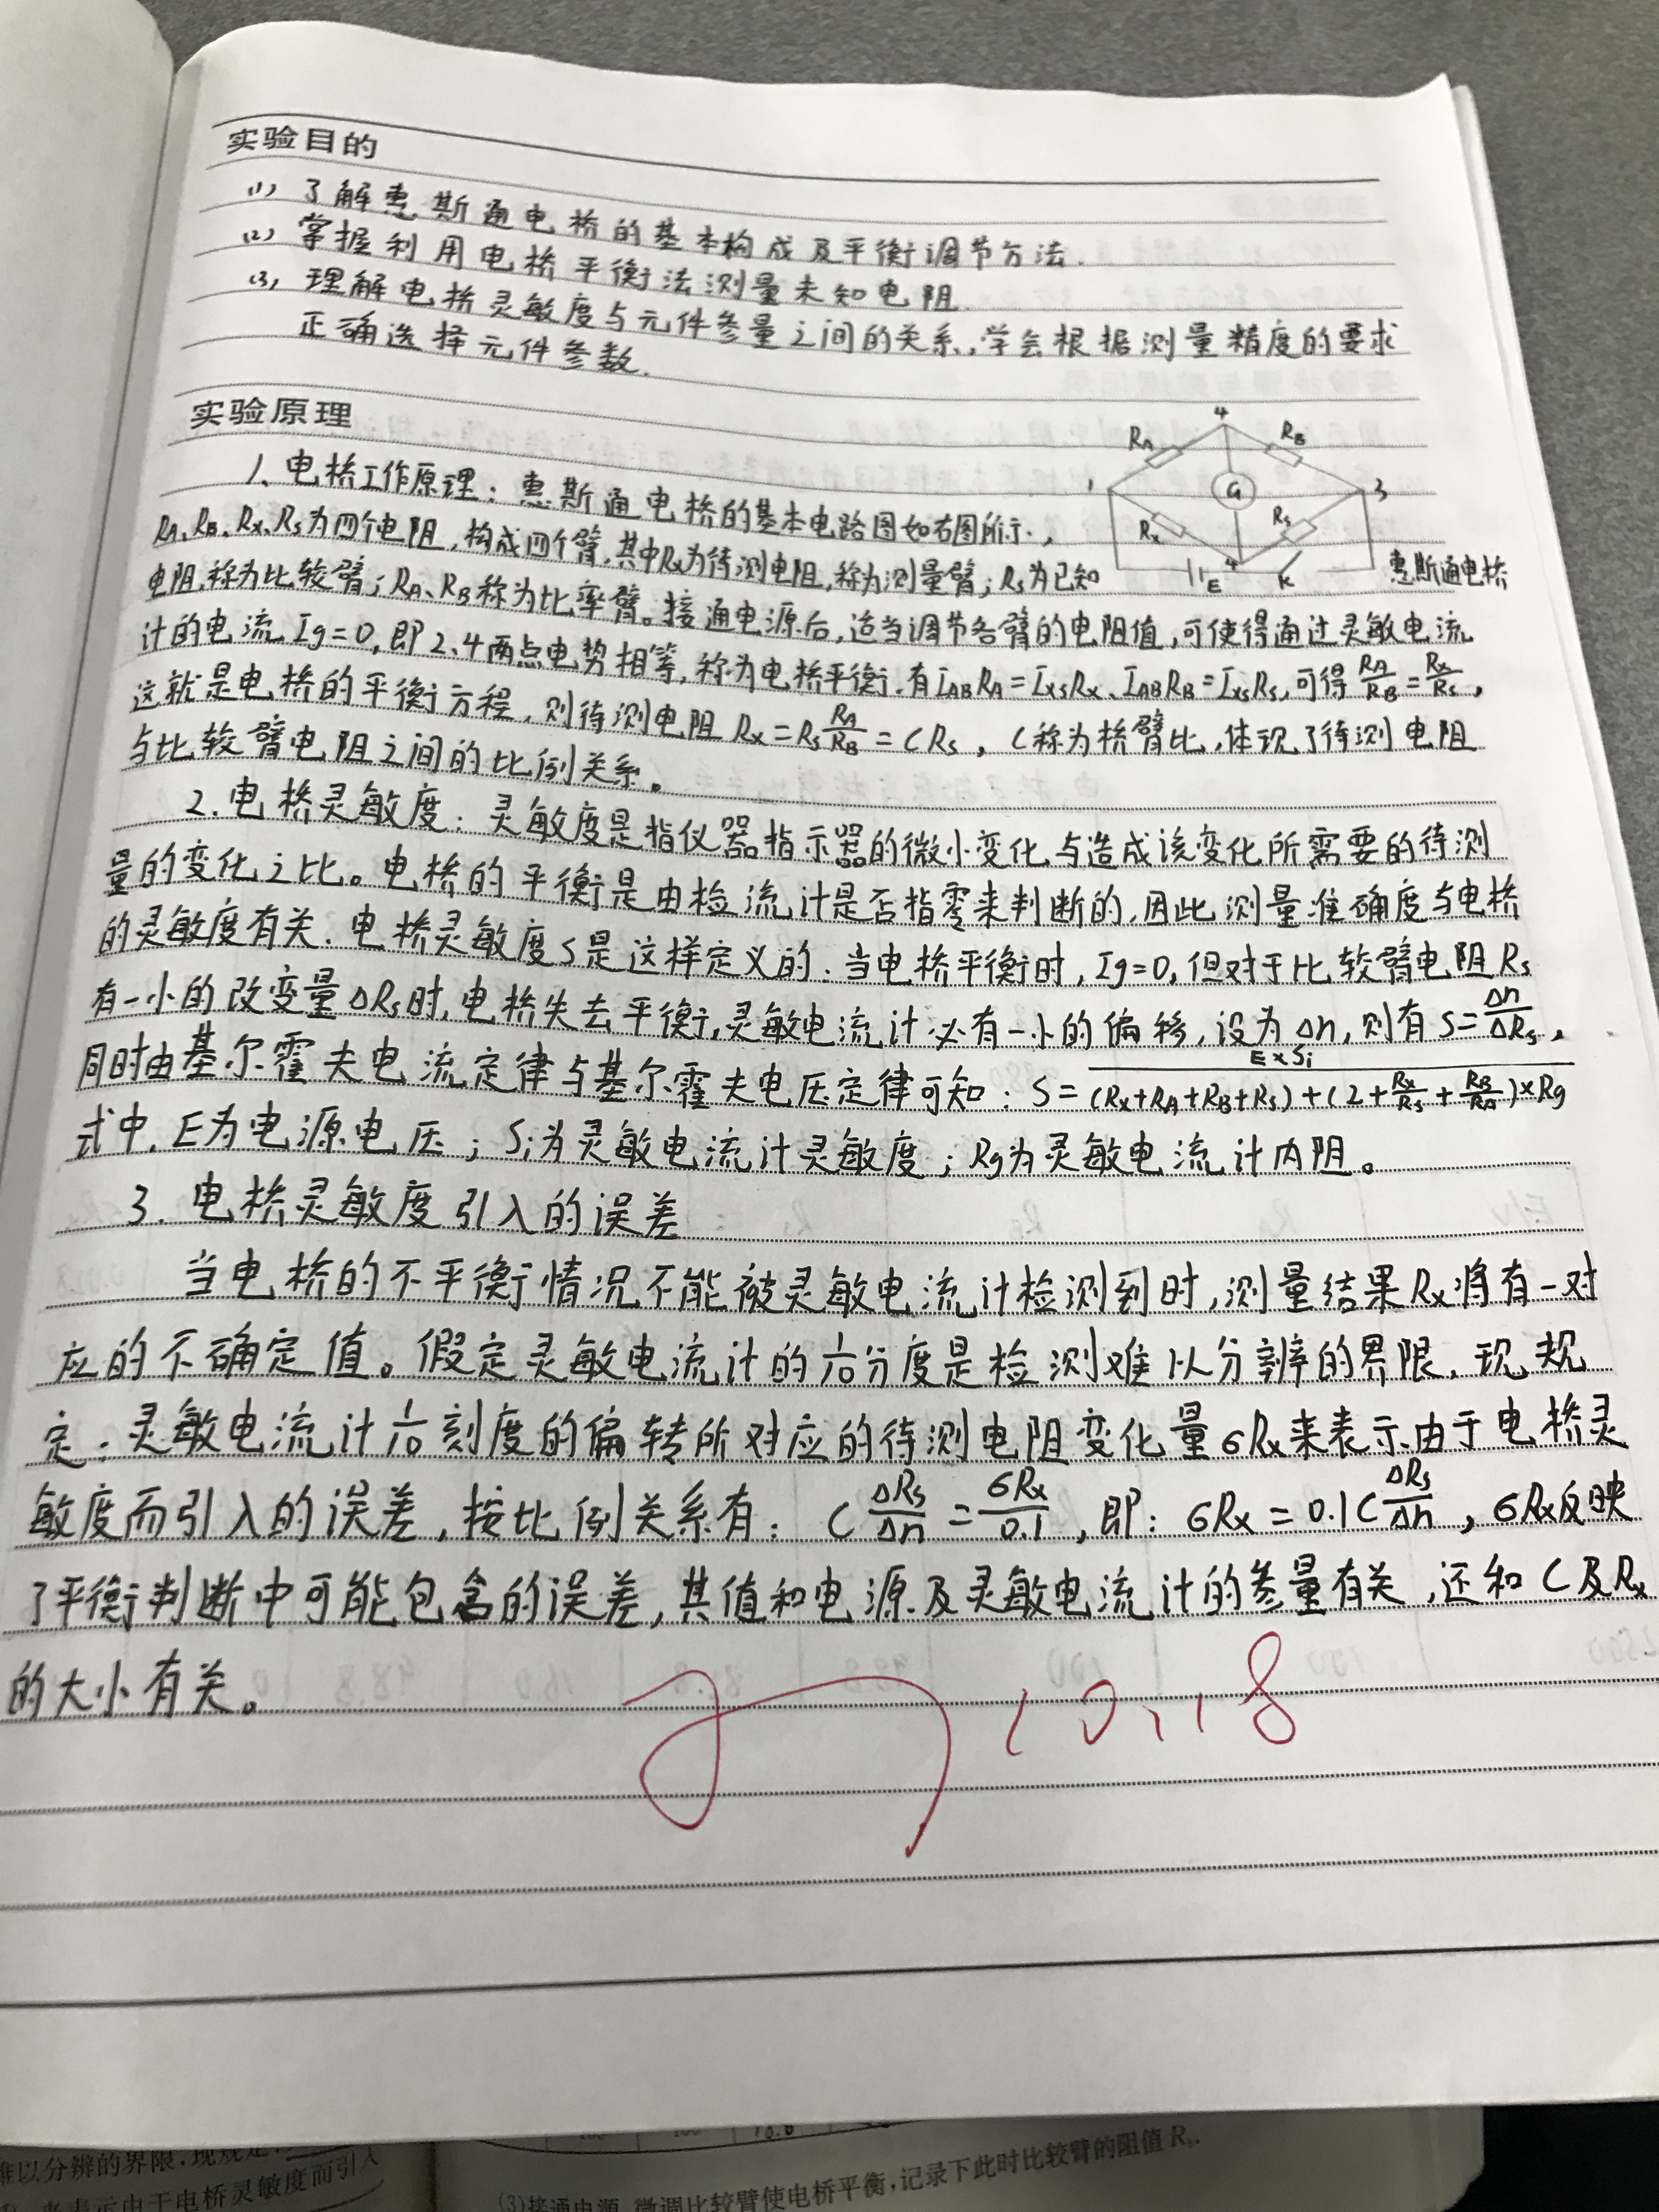 实验目的
(1) 了解惠斯通电桥的基本构成及平衡调节方法.
(2) 掌握利用电桥平衡法测量未知电阻.
(3) 理解电桥灵敏度与元件参量之间的关系,学会根据测量精度的要求
正确选择元件参数.
实验原理
4
RA RB
1 G 3
Rx Rs
4
E K
惠斯通电桥
1、电桥工作原理:惠斯通电桥的基本电路图如右图所示,
RA、RB、Rx、Rs为四个电阻,构成四个臂,其中Rx为待测电阻,称为测量臂;Rs为已知
电阻,称为比较臂;RA、RB称为比率臂。接通电源后,适当调节各臂的电阻值,可使得通过灵敏电流
计的电流Ig=0,即2、4两点电势相等,称为电桥平衡.有IABRA=IxsRx、IABRB=IxsRs,可得RA/RB=Rx/Rs,
这就是电桥的平衡方程,则待测电阻Rx=Rs RA/RB=CRs,C称为桥臂比,体现了待测电阻
与比较臂电阻之间的比例关系。
2.电桥灵敏度:灵敏度是指仪器指示器的微小变化与造成该变化所需要的待测
量的变化之比。电桥的平衡是由检流计是否指零来判断的,因此测量准确度与电桥
的灵敏度有关.电桥灵敏度S是这样定义的:当电桥平衡时,Ig=0,但对于比较臂电阻Rs
有一小的改变量ΔRs时,电桥失去平衡,灵敏电流计必有一小的偏移,设为Δn,则有S=Δn/ΔRs,
同时由基尔霍夫电流定律与基尔霍夫电压定律可知:S=E×Si/((Rx+RA+RB+Rs)+(2+Rx/Rs+RB/RA)×Rg)
式中,E为电源电压;Si为灵敏电流计灵敏度;Rg为灵敏电流计内阻。
3.电桥灵敏度引入的误差
当电桥的不平衡情况不能被灵敏电流计检测到时,测量结果Rx将有一对
应的不确定值。假定灵敏电流计的1/10分度是检测难以分辨的界限,现规
定:灵敏电流计1/10刻度的偏转所对应的待测电阻变化量σRx来表示由于电桥灵
敏度而引入的误差,按比例关系有:C ΔRs/Δn=σRx/0.1,即:σRx=0.1C ΔRs/Δn,σRx反映
了平衡判断中可能包含的误差,其值和电源及灵敏电流计的参量有关,还和C及Rx
的大小有关。
10.18
难以分辨的界限,现规定
表示由于电桥灵敏度而引入
(3)接通电源,微调比较臂使电桥平衡,记录下此时比较臂的阻值Rs.